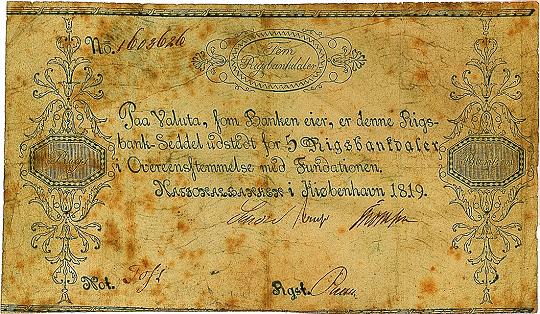 No. 1603626
Fem
Rigsbankdaler
Paa Valuta, som Banken eier, er denne Rigs-
bank-Seddel udstedt for 5 Rigsbankdaler
i Overeensstemmelse med Fundationen.
Nationalbanken i Kiøbenhavn 1819.
Not.
Rgst.